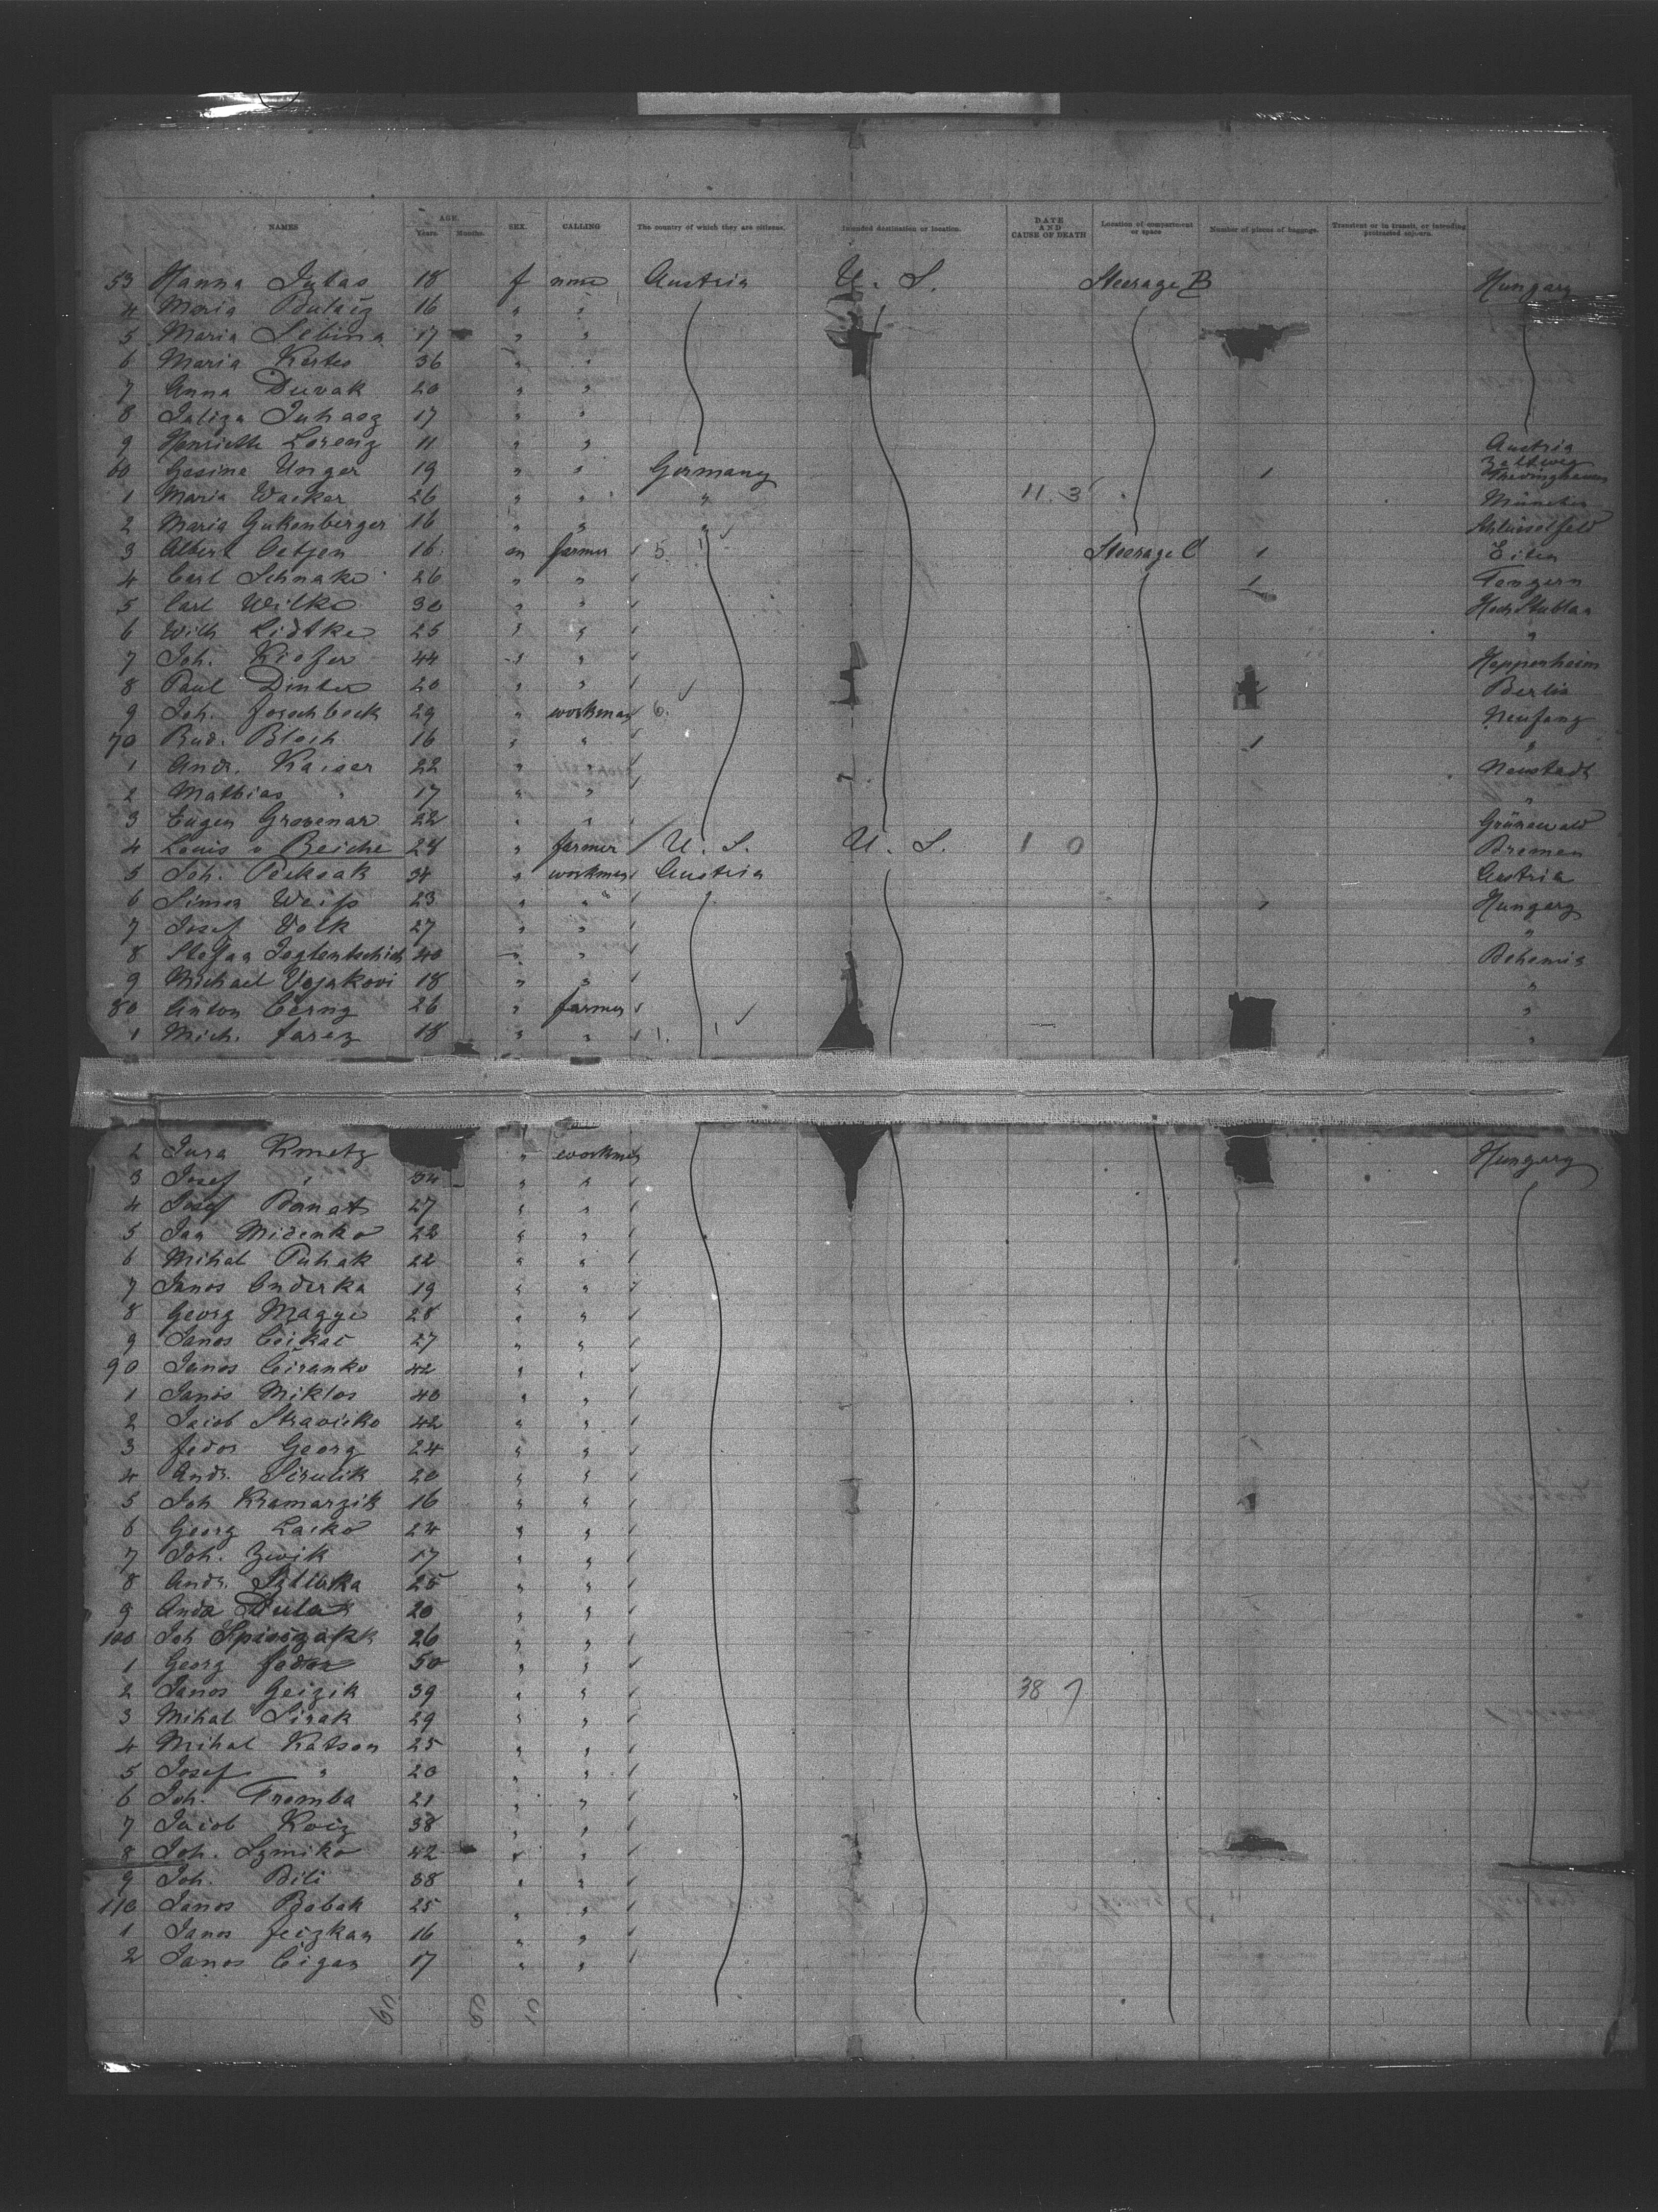 NAMES AGE. Years. Months. SEX. CALLING The country of which they are citizens. Intended destination or location. DATE AND CAUSE OF DEATH Location of compartment or space Number of pieces of baggage. Transient or in transit, or intending protracted sojourn.
53 Hanna Juhas 18 f none Austria U. S. Steerage B Hungary
4 Maria 16 " "
5 Maria Sebina 17 " "
6 Maria Kertes 36 " "
7 Anna Duvak 20 " "
8 Juliza Juhasz 17 " "
9 Henriette Lorenz 11 " " Austria
60 Gesine Unger 19 " " Germany 1
1 Maria Wacker 26 " " " 11. 3 München
2 Maria Gukenberger 16 " " " Schlüsselfeld
3 Albert Oetjen 16 m farmer 5. Steerage C 1 Eiten
4 Carl Schnake 26 " " 1 Tengern
5 Carl Wilke 30 " "
6 Wilh Lidtke 25 " " "
7 Joh. Kiefer 44 " " Heppenheim
8 Paul Dinter 20 " " Berlin
9 Joh. Forschbeck 29 " workman 6. Neufang
70 Rud. Bloch 16 " " 1 "
1 Andr. Kaiser 22 " " Neustadt
2 Mathias " 17 " " "
3 Eugen Grovenar 22 " " Grünewald
4 Louis v Reiche 28 " farmer U. S. U. S. 1 0 Bremen
5 Joh. Peksak 34 " workman Austria Austria
6 Simon Weiss 23 " " 1 Hungary
7 Josef Volk 27 " " "
8 Stefan 40 " " Bohemia
9 Michael Vojakovi 18 " " "
80 Anton Cerny 26 " farmer "
1 Mich. Farez 18 " " 1. 1 "
2 Jura Kmetz " workman Hungary
3 Josef " 34 " "
4 Josef Banat 27 " "
5 Jan Midenko 22 " "
6 Mihal Puhak 22 " "
7 Janos Onderka 19 " "
8 Georg Magyi 28 " "
9 Janos Csikas 27 " "
90 Janos Ciranko 42 " "
1 Janos Miklos 40 " "
2 Jacob Stravicko 42 " "
3 Fedor Georg 24 " "
4 Andr. Sirutik 20 " "
5 Joh Kramarzik 16 " "
6 Georg Laiko 24 " "
7 Joh. Zwik 17 " "
8 Andr. 25 " "
9 Andr Dula 20 " "
100 Joh 26 " "
1 Georg Fedor 50 " "
2 Janos Geizik 39 " " 38 7
3 Mihal Sirak 29 " "
4 Mihal Katson 25 " "
5 Josef " 20 " "
6 Joh. Tromba 21 " "
7 Jacob Koiz 38 " "
8 Joh. Szmiko 42 " "
9 Joh. Bili 38 " "
110 Janos Babak 25 " "
1 Janos Feizkan 16 " "
2 Janos Cigan 17 " "